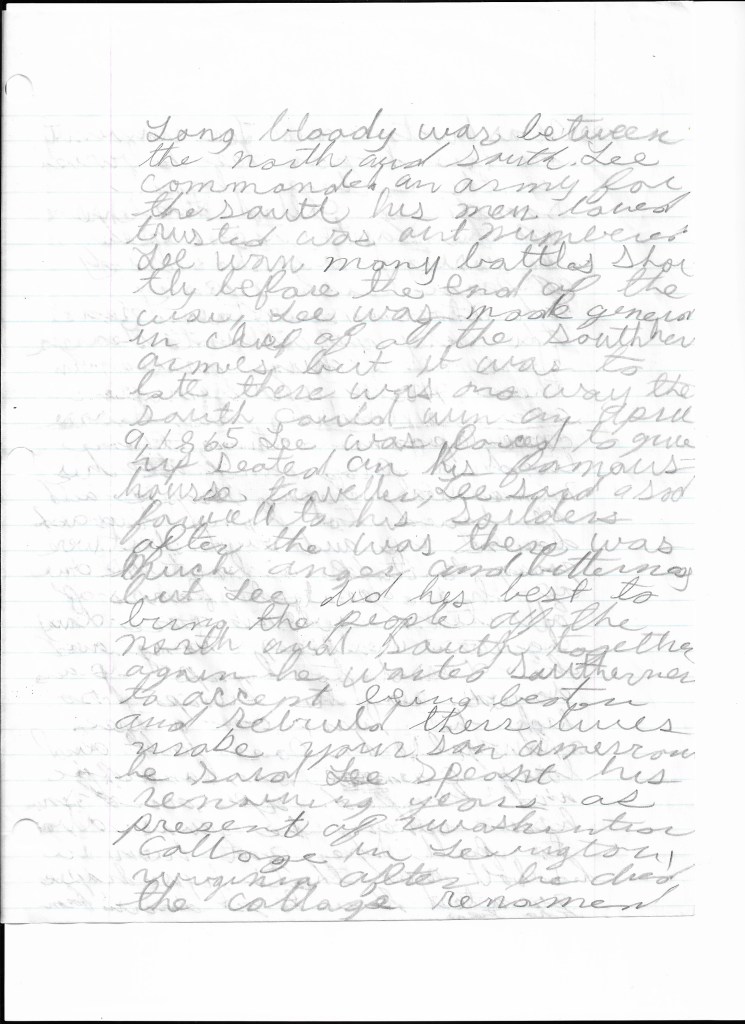 Long bloody war between
the north and south. Lee
commanded an army for
the south his men loved
trusted was out numbered
Lee won many battles shor
tly before the end of the
war, Lee was made general
in chief of all the southern
armes but it was to
late there was no way the
south could win on April
9, 1865 Lee was forced to give
up seated on his famous
hourse traveller, Lee said a sad
farwell to his soilders
after the was there was
much anger and bitterness
but Lee did his best to
bring the people of the
north and south together
again he wanted southerners
to accept being beaton
and rebuild their lives
make your son american
he said Lee speant his
remaining years as
present of washinton
Collage in Lexington,
virginia after he died
the collage renamed